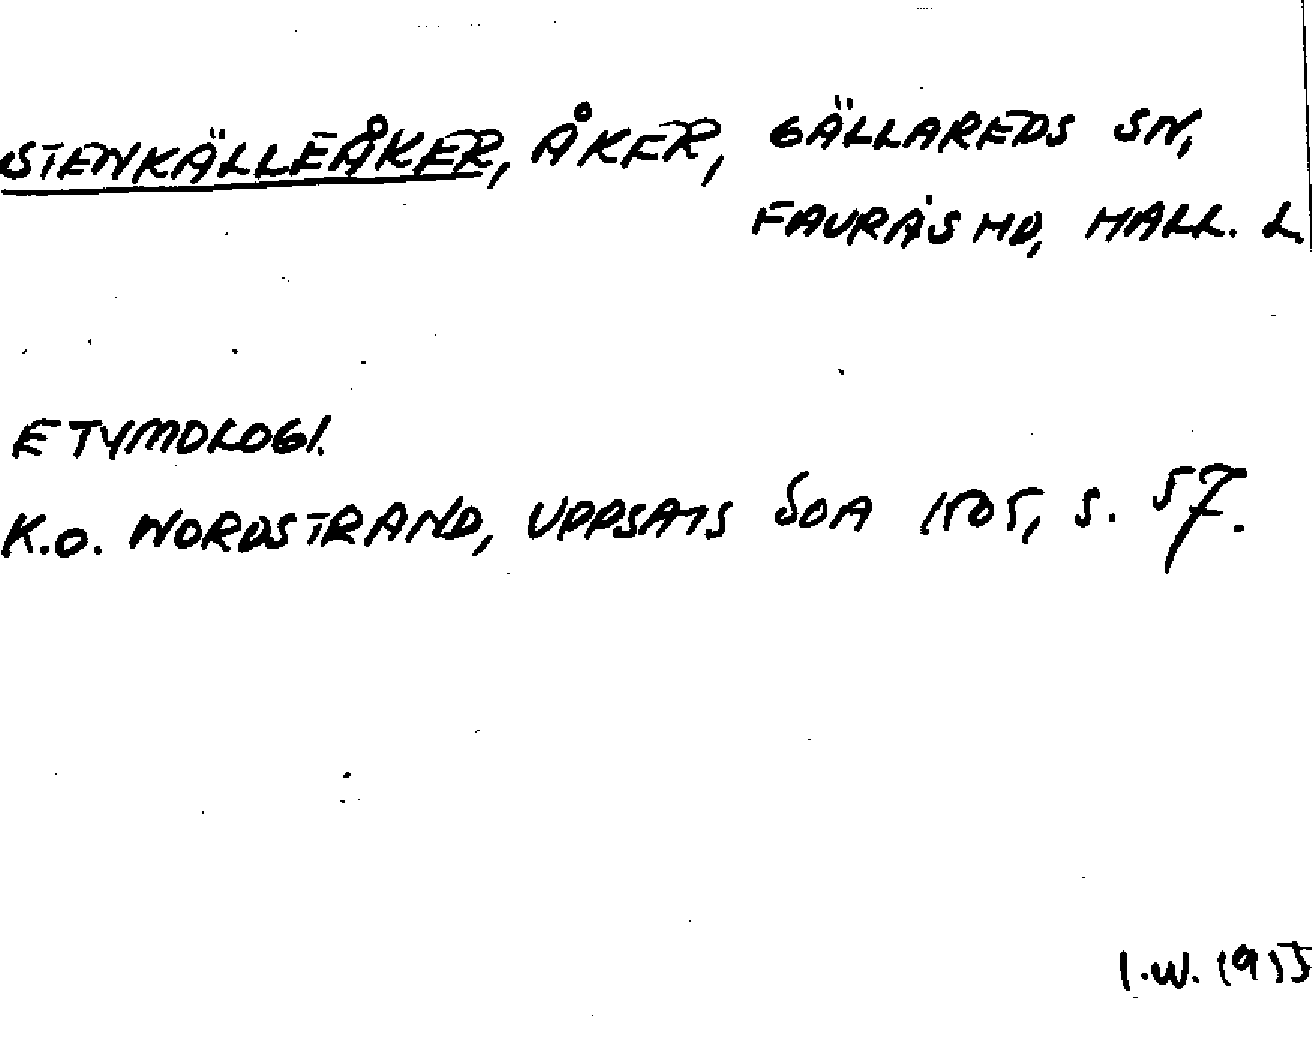 STENKÄLLEÅKER, ÅKER, GÄLLAREDS SN,
FAURÅS HD, HALL. L.
ETYMOLOGI.
K.O. NORDSTRAND, UPPSATS SOA 1505, S. 57.
I.W. 1955